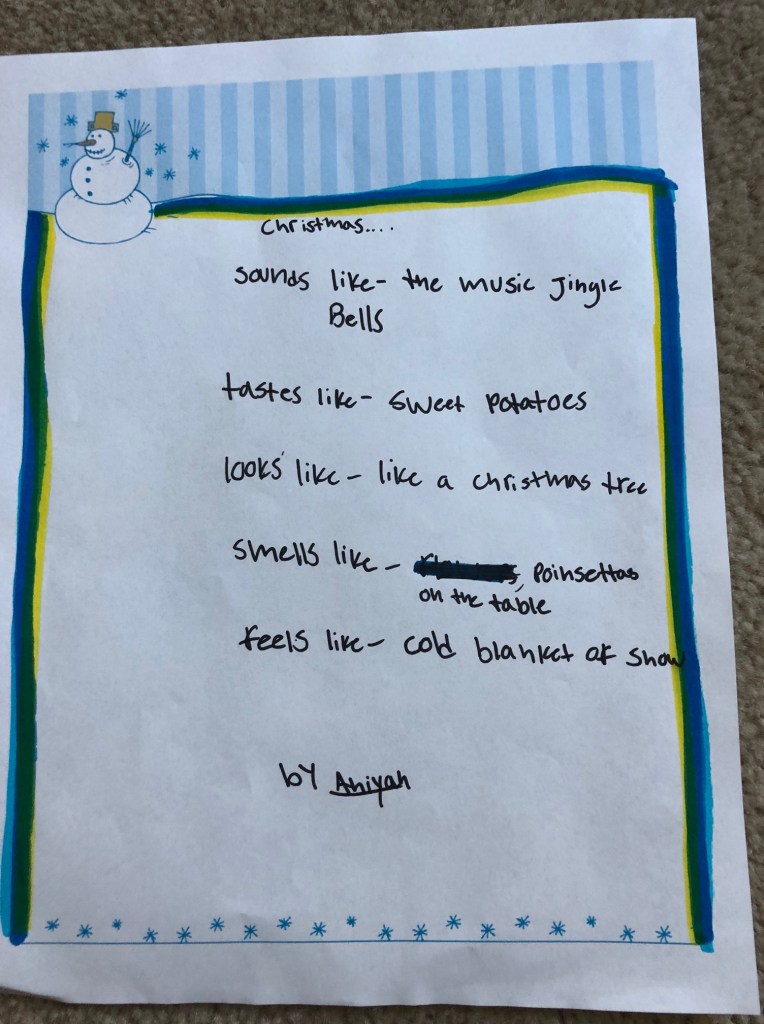 Christmas....
sounds like- the music Jingle
Bells
tastes like- sweet potatoes
looks like- like a christmas tree
smells like- , Poinsettas
on the table
feels like- cold blanket of snow
by Aniyah